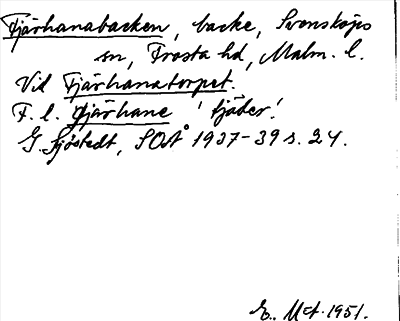 Tjärhanabacken, backe, Svensköps
sn, Frosta hd, Malm. l.
Vid Tjärhanatorpet.
F. l. tjärhane 'tjäder'.
G. Sjöstedt, SOÅ 1937-39 s. 24.
1951.